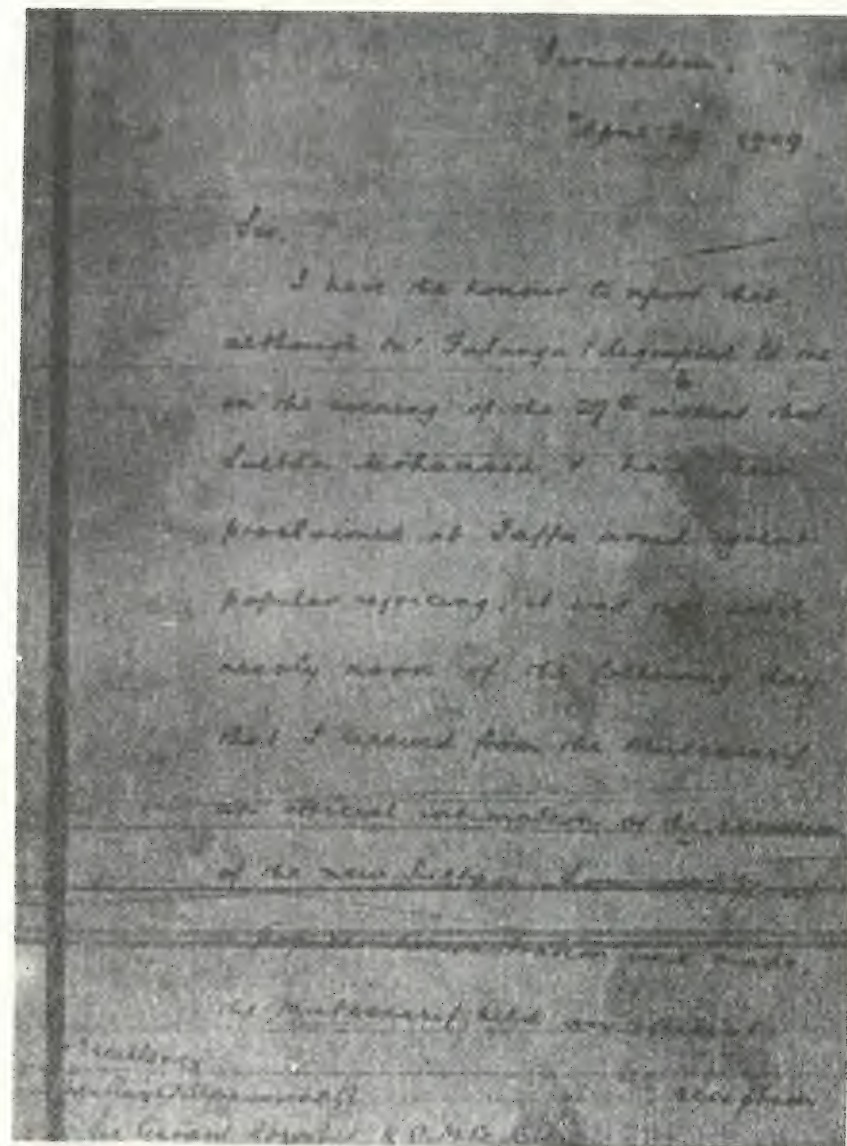 Jerusalem.
April 29 1909.
Sir,
I have the honour to report that,
although Mr Falanga telegraphed to me
on the evening of the 27th instant that
Sultan Mohammed V had been
proclaimed at Jaffa amid great
popular rejoicing, it was not until
nearly noon of the following day
that I received from the Mutessarif
an official intimation of the accession
of the new Sultan. Some
a popular demonstration was made,
the Mutessarif held an official
reception
Excellency
The Right Honourable
Sir Gerard Lowther K.C.M.G. C.B.